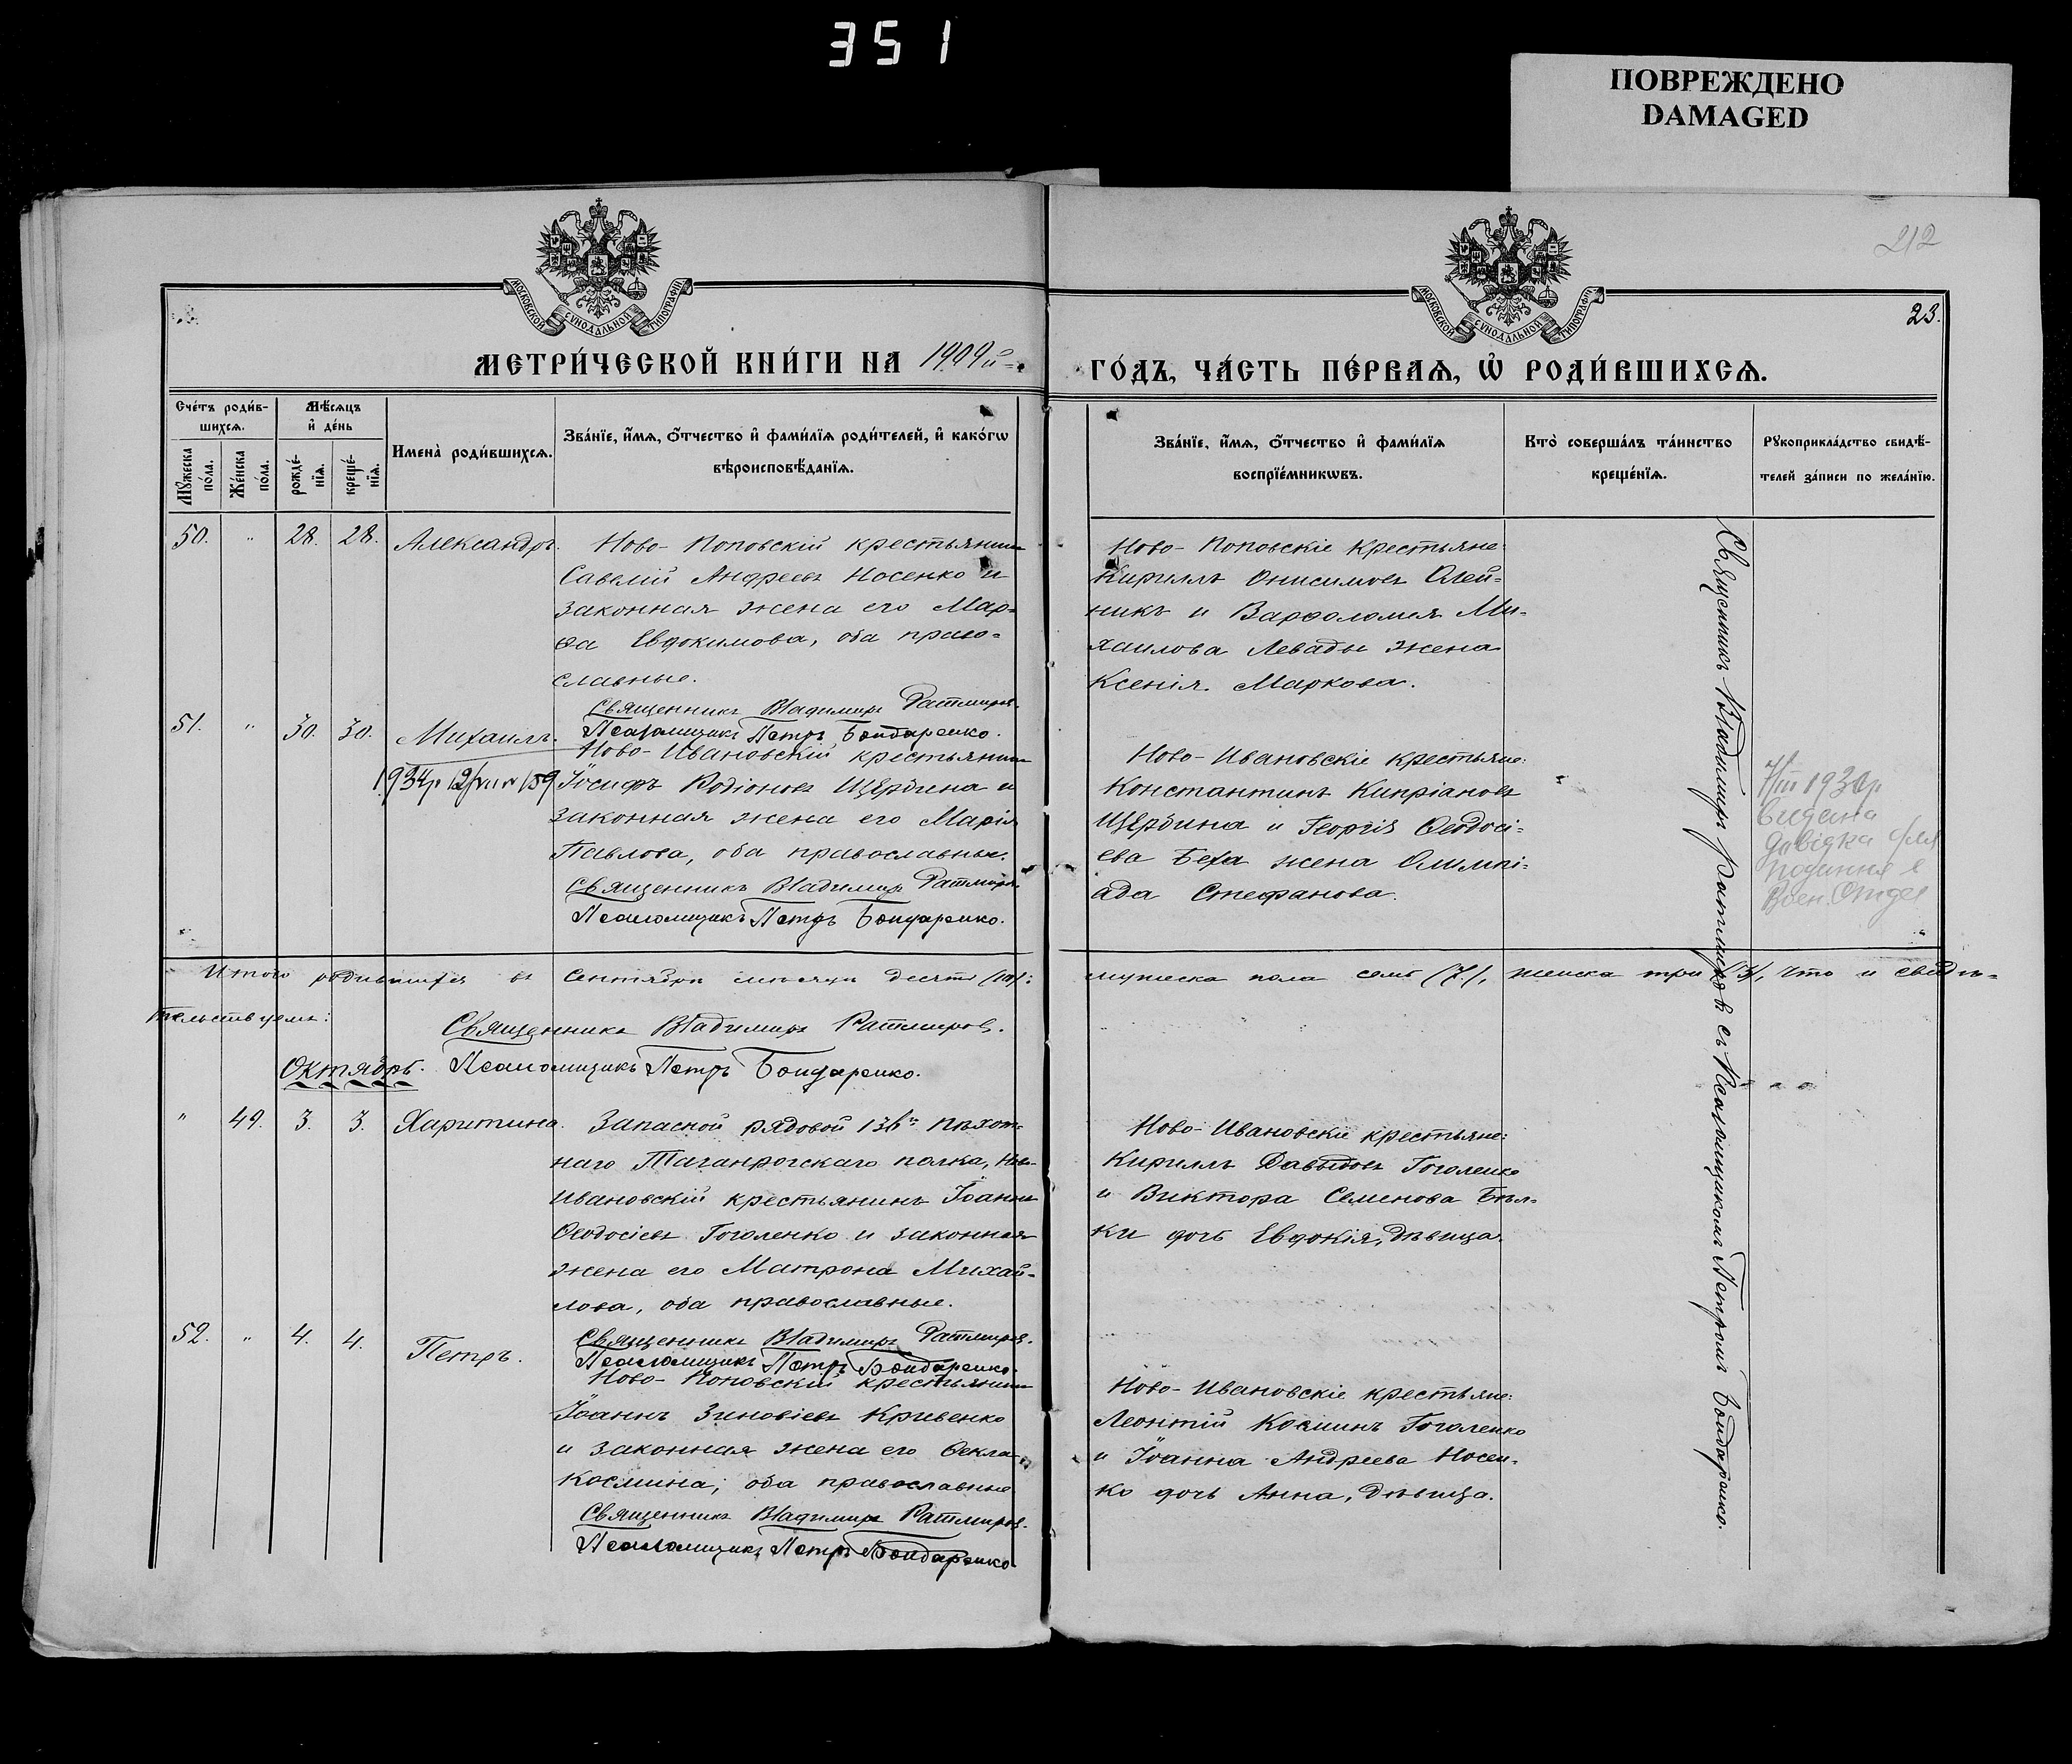 351
ПОВРЕЖДЕНО
DAMAGED
212
23.
МОСКОВСКОЙ СУНОДАЛЬНОЙ ТИПОГРАФІИ
МОСКОВСКОЙ СУНОДАЛЬНОЙ ТИПОГРАФІИ
МЕТРИ́ЧЕСКОЙ КНИ́ГИ НА 1909й
ГО́ДЪ, ЧА́СТЬ ПЕ́РВАѦ, Ѡ҆ РОДИ́ВШИХСѦ.
Сче́тъ роди́в-
шихсѧ.
Мѣ́сѧцъ
и҆ де́нь
Мꙋ́жеска
по́ла.
Же́нска
по́ла.
рожде́-
нїѧ.
креще́-
нїѧ.
Имена̀ роди́вшихсѧ.
Зва́нїе, и҆́мѧ, ѻ҆́тчество и҆ фами́лїѧ роди́телей, и҆ како́гѡ
вѣроисповѣ́данїѧ.
Зва́нїе, и҆́мѧ, ѻ҆́тчество и҆ фами́лїѧ
воспрїе́мникѡвъ.
Кто̀ соверша́лъ та́инство
креще́нїѧ.
Рꙋкоприкла́дство свидѣ́-
телей за́писи по жела́нїю.
50. " 28. 28. Александръ.
Ново-Поповскій крестьянинъ
Савелій Андреевъ Носенко и
законная жена его Мар-
ѳа Евдокимова, оба право-
славные.
Священникъ Владимиръ Ратмировъ.
Псаломщикъ Петръ Бондаренко.
Ново-Поповскіе крестьяне:
Кириллъ Онисимовъ Олей-
никъ и Варѳоломея Ми-
хаилова Левады жена
Ксенія Маркова.
51. " 30. 30. Михаилъ.
1934р 12/VIII № 159
Ново-Ивановскій крестьянинъ
Іосифъ Родіоновъ Щербина и
законная жена его Марія
Павлова, оба православные.
Священникъ Владимиръ Ратмировъ.
Псаломщикъ Петръ Бондаренко.
Ново-Ивановскіе крестьяне:
Константинъ Кипріановъ
Щербина и Георгія Ѳеодосі-
ева Беха жена Олимпі-
ада Стефанова.
видана
довідка для
Воен. Отдел
Итого родившихся въ Сентябрѣ мѣсяцѣ десять (10): мужеска пола семь (7), женска три (3), что и свидѣ-
тельствуемъ:
Священникъ Владимиръ Ратмировъ.
Псаломщикъ Петръ Бондаренко.
Октябрь.
" 49. 3. 3. Харитина.
Запасной рядовой 136го пѣхот-
наго Таганрогскаго полка, Ново-
Ивановскій крестьянинъ Іоаннъ
Ѳеодосіевъ Гоголенко и законная
жена его Матрона Михай-
лова, оба православные.
Священникъ Владимиръ Ратмировъ.
Псаломщикъ Петръ Бондаренко.
Ново-Ивановскіе крестьяне:
Кириллъ Давыдовъ Гоголенко
и Виктора Семенова Бѣл-
ки дочь Евдокія, дѣвица.
52. " 4. 4. Петръ.
Ново-Поповскій крестьянинъ
Іоаннъ Зиновіевъ Кривенко
и законная жена его Ѳекла
Космина; оба православные
Священникъ Владимиръ Ратмировъ.
Псаломщикъ Петръ Бондаренко
Ново-Ивановскіе крестьяне:
Леонтій Косминъ Гоголенко
и Іоанна Андреева Носен-
ко дочь Анна, дѣвица.
Священникъ Владимиръ Ратмировъ съ Псаломщикомъ Петромъ Бондаренко.